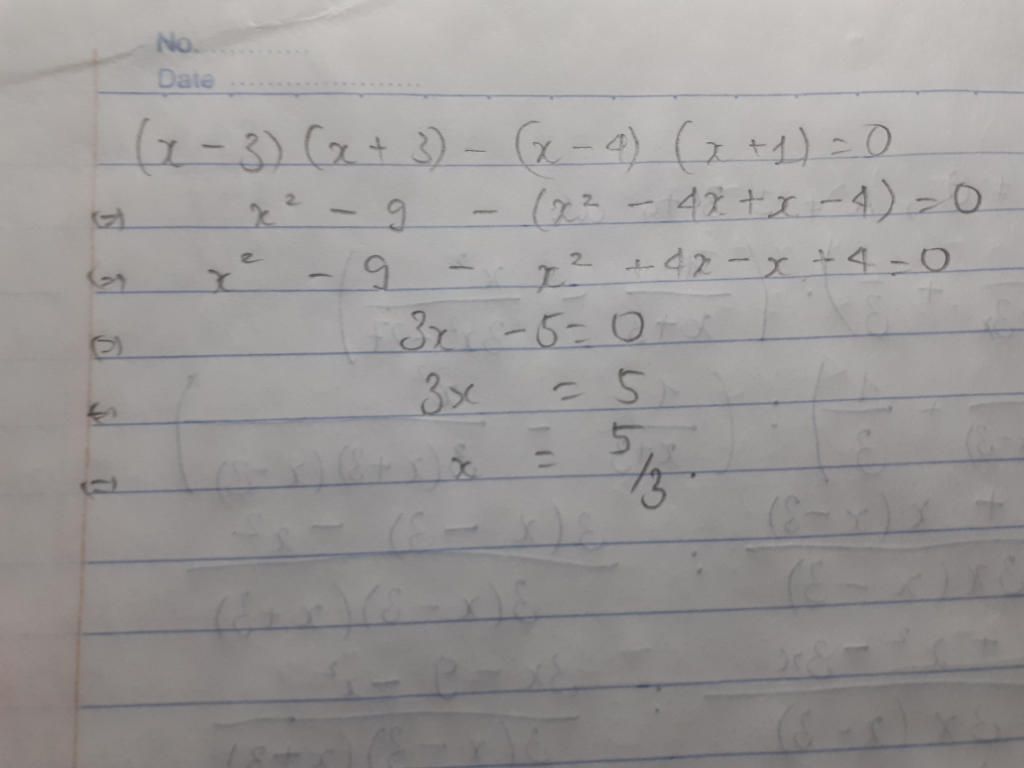 No. ............
Date ......................
(x - 3) (x + 3) - (x - 4) (x + 1) = 0
⇔ x² - 9 - (x² - 4x + x - 4) = 0
⇔ x² - 9 - x² + 4x - x + 4 = 0
⇔ 3x - 5 = 0
⇔ 3x = 5
⇔ x = 5/3.